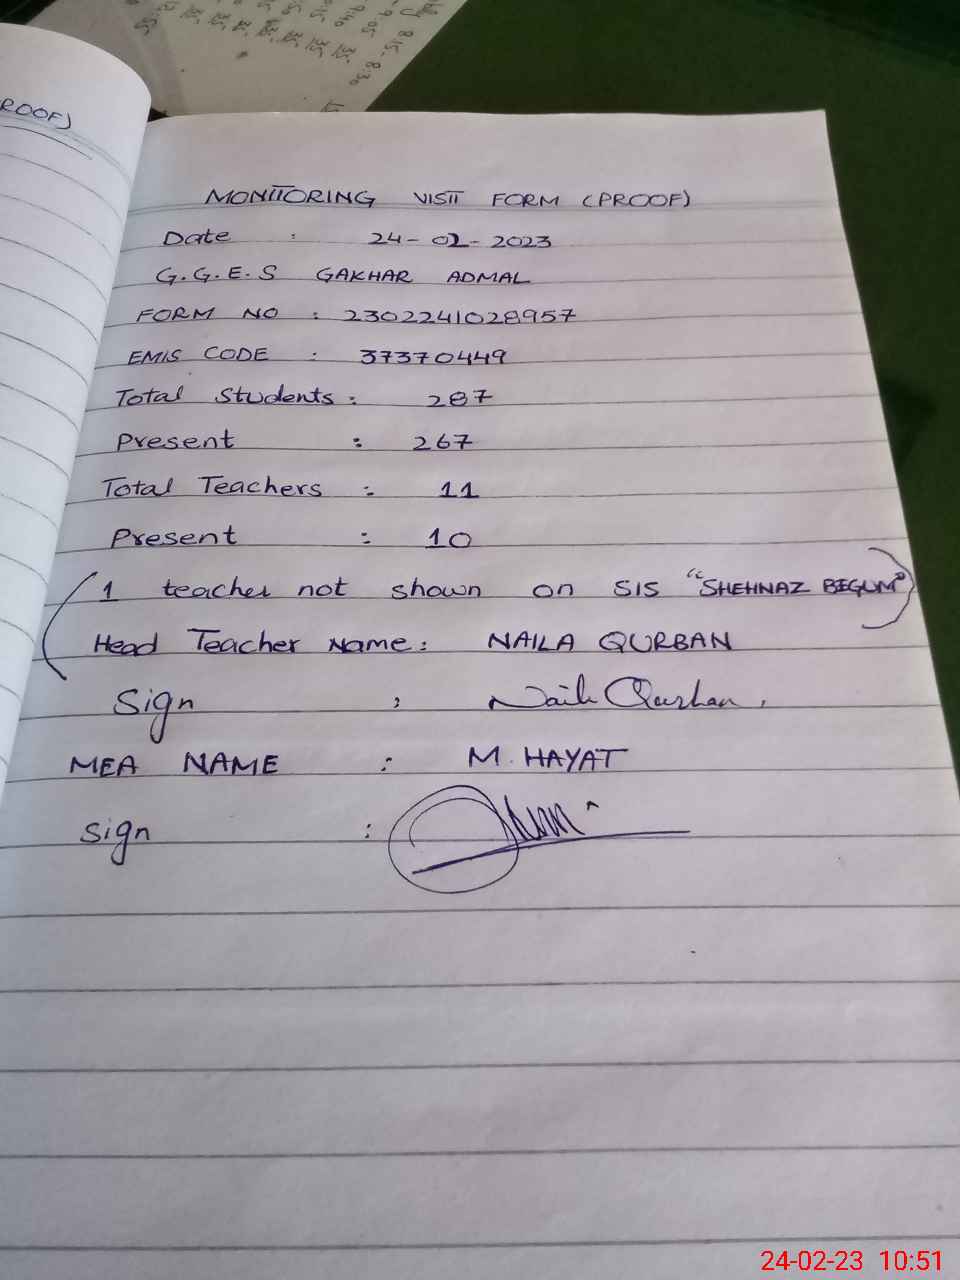 ROOF)
8:15-8:30
MONITORING VISIT FORM (PROOF)
Date : 24-02-2023
G.G.E.S GAKHAR ADMAL
FORM NO : 2302241028957
EMIS CODE : 37370449
Total Students: 287
Present : 267
Total Teachers : 11
Present : 10
(1 teacher not shown on SIS "SHEHNAZ BEGUM")
Head Teacher Name: NAILA QURBAN
Sign : Naila Qurban
MEA NAME : M. HAYAT
Sign :
24-02-23 10:51